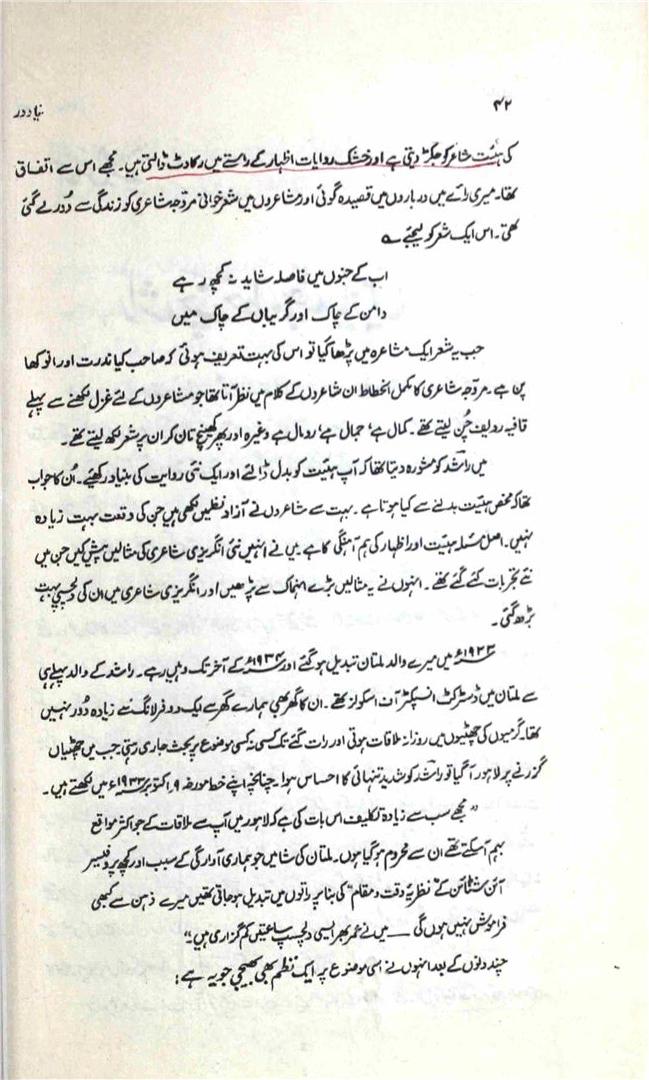 ۴۲
نیا دور
کی ہیئت شاعر کو جکڑ دیتی ہے اور خشک روایات اظہار کے راستے میں رکاوٹ ڈالتی ہیں۔ مجھے اس سے اتفاق
تھا۔ میری رائے میں درباروں میں قصیدہ گوئی اور مشاعروں میں شعر خوانی مروّجہ شاعری کو زندگی سے دُور لے گئی
تھی۔ اس ایک شعر کو لیجئے ؎
اب کے جنوں میں فاصلہ شاید نہ کچھ رہے
دامن کے چاک اور گریباں کے چاک میں
جب یہ شعر ایک مشاعرہ میں پڑھا گیا تو اس کی بہت تعریف ہوئی کہ صاحب کیا ندرت اور انوکھا
پن ہے۔ مروّجہ شاعری کا مکمل انحطاط ان شاعروں کے کلام میں نظر آتا تھا جو مشاعروں کے لئے غزل لکھنے سے پہلے
قافیہ ردیف چُن لیتے تھے۔ کمال ہے، جمال ہے، رومال ہے وغیرہ اور پھر کھینچ تان کر ان پر شعر لکھ لیتے تھے۔
میں راشد کو مشورہ دیتا تھا کہ آپ ہیئت کو بدل ڈالئے اور ایک نئی روایت کی بنیاد رکھئے۔ اُن کا جواب
تھا کہ محض ہیئت بدلنے سے کیا ہوتا ہے۔ بہت سے شاعروں نے آزاد نظمیں لکھی ہیں جن کی وقعت بہت زیادہ
نہیں۔ اصل مسئلہ ہیئت اور اظہار کی ہم آہنگی کا ہے۔ میں نے انہیں نئی انگریزی شاعری کی مثالیں پیش کیں جن میں
نئے تجربات کئے گئے تھے۔ انہوں نے یہ مثالیں بڑے انہماک سے پڑھیں اور انگریزی شاعری میں ان کی دلچسپی بہت
بڑھ گئی۔
۱۹۳۳ء میں میرے والد ملتان تبدیل ہو گئے اور ۱۹۳۴ء کے آخر تک وہیں رہے۔ راشد کے والد پہلے ہی
سے ملتان میں ڈسٹرکٹ انسپکٹر آف اسکولز تھے۔ ان کا گھر بھی ہمارے گھر سے ایک دو فرلانگ سے زیادہ دُور نہیں
تھا۔ گرمیوں کی چھٹیوں میں روزانہ ملاقات ہوتی اور رات گئے تک کسی نہ کسی موضوع پر بحث جاری رہتی جب میں چھٹیاں
گزرنے پر لاہور آ گیا تو راشد کو شدید تنہائی کا احساس ہوا۔ چنانچہ اپنے خط مورخہ ۹ اکتوبر ۱۹۳۳ء میں لکھتے ہیں۔
"مجھے سب سے زیادہ تکلیف اس بات کی ہے کہ لاہور میں آپ سے ملاقات کے جو اکثر مواقع
بہم آسکتے تھے ان سے محروم ہو گیا ہوں۔ ملتان کی شامیں جو ہماری آوارگی کے سبب اور کچھ پروفیسر
آئن شٹائن کے "نظریۂ وقت و مقام" کی بنا پر راتوں میں تبدیل ہو جاتی تھیں میرے ذہن سے کبھی
فراموش نہیں ہوں گی — میں نے عمر بھر ایسی دلچسپ ساعتیں کم گزاری ہیں۔"
چند دنوں کے بعد انہوں نے اسی موضوع پر ایک نظم بھی بھیجی جو یہ ہے: